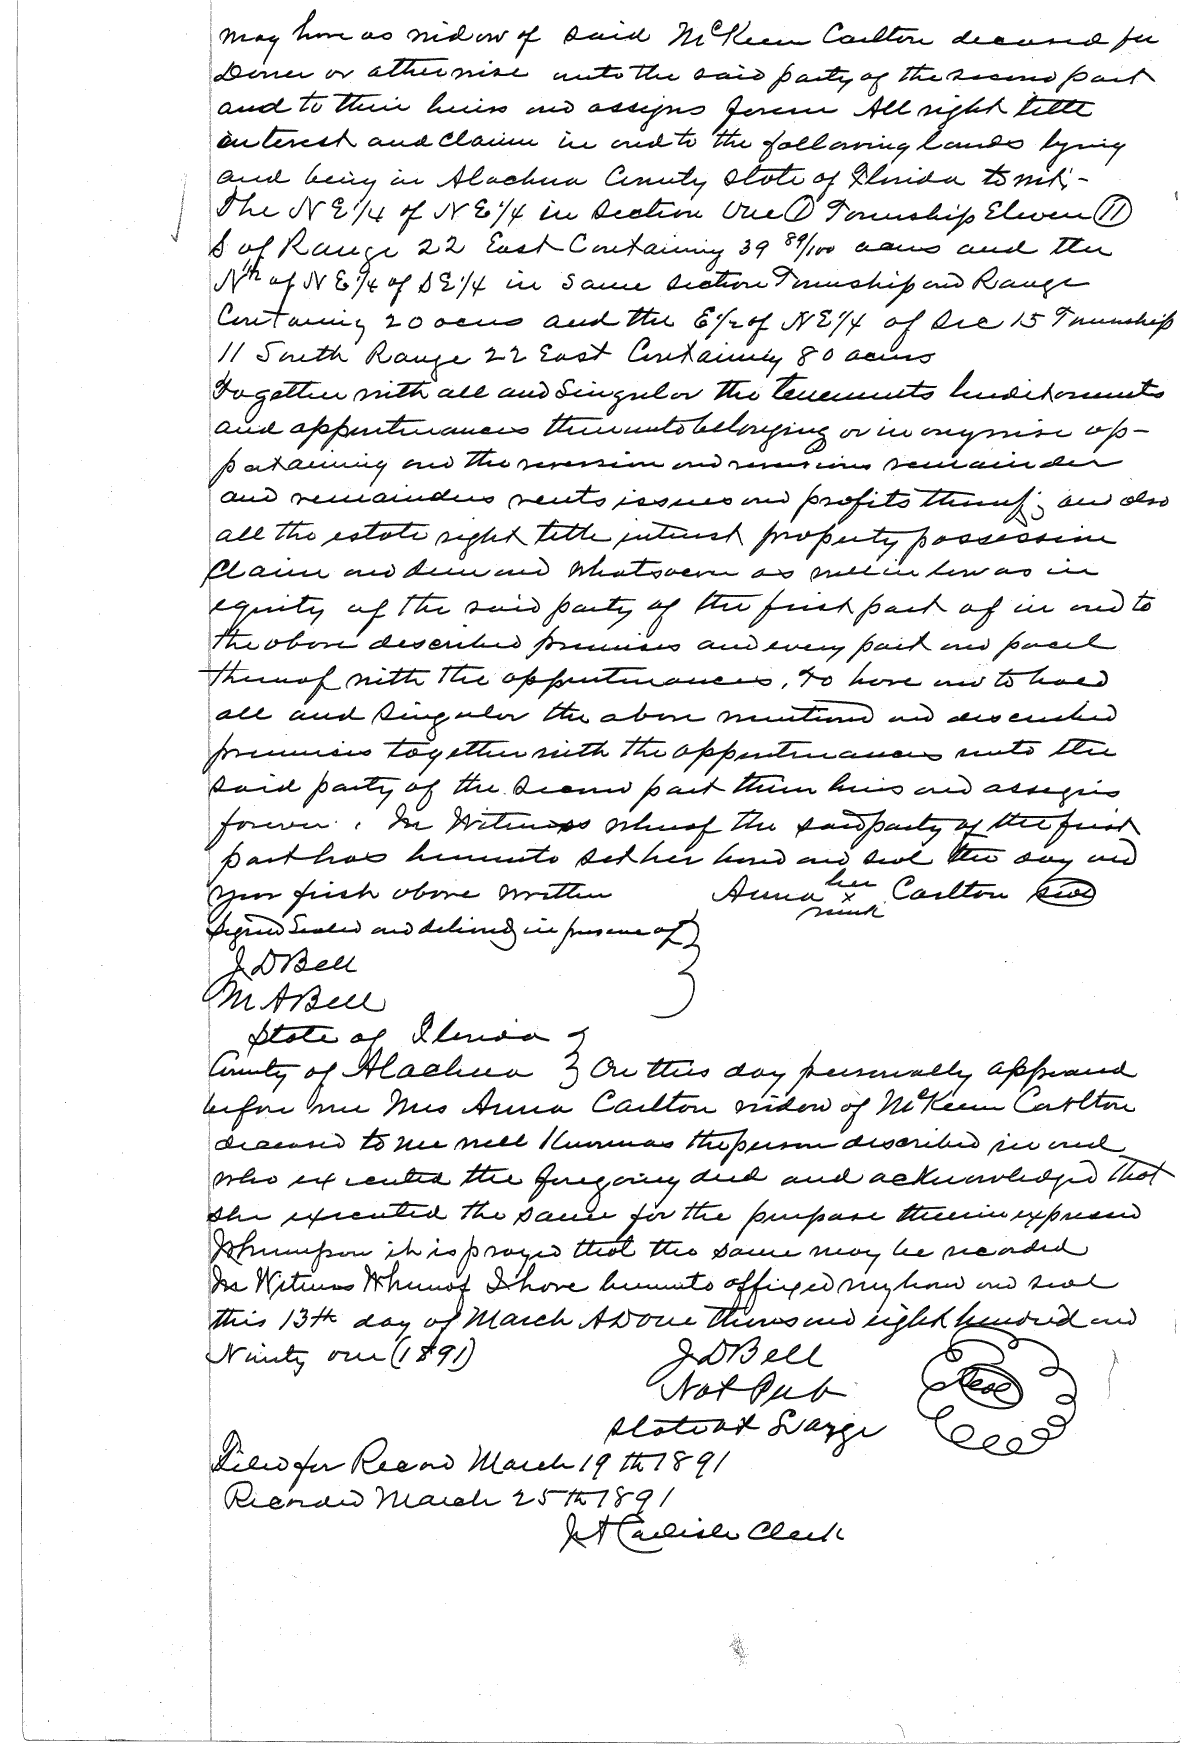 may have as widow of said McKeen Carlton deceased per
Dower or otherwise unto the said party of the second part
and to their heirs and assigns forever All right title
interest and claim in and to the following lands lying
and being in Alachua County State of Florida to wit;-
The NE 1/4 of NE 1/4 in Section One (1) Township Eleven (11)
S of Range 22 East Containing 39 89/100 acres and the
Nh of NE 1/4 of SE 1/4 in Same Section Township and Range
Containing 20 acres and the E 1/2 of NE 1/4 of Sec 15 Township
11 South Range 22 East Containing 80 acres
Together with all and Singular the tenements hereditaments
and appurtenances thereunto belonging or in anywise ap-
pertaining and the reversion and reversions remainder
and remainders rents issues and profits thereof; and also
all the estate right title interest property possession
Claim and demand whatsoever as well in law as in
equity of the said party of the first part of in and to
the above described premises and every part and parcel
thereof with the appurtenances, to have and to hold
all and singular the above mentioned and described
premises together with the appurtenances unto the
said party of the second part their heirs and assigns
forever. In Witness whereof the said party of the first
part has hereunto set her hand and seal the day and
year first above written Anna her x mark Carlton seal
Signed Sealed and delivered in presence of }
J D Bell
M A Bell
State of Florida }
County of Alachua } On this day personally appeared
before me Mrs Anna Carlton widow of McKeen Carlton
deceased to me well known as the person described in and
who executed the foregoing deed and acknowledged that
she executed the same for the purpose therein expressed
Whereupon it is prayed that the same may be recorded
In Witness Whereof I have hereunto affixed my hand and seal
this 13th day of March AD One thousand eight hundred and
Ninty one (1891) J D Bell
Not Pub Seal
State at Large
Filed for Record March 19th 1891
Recorded March 25th 1891
J A Carlisle Clerk